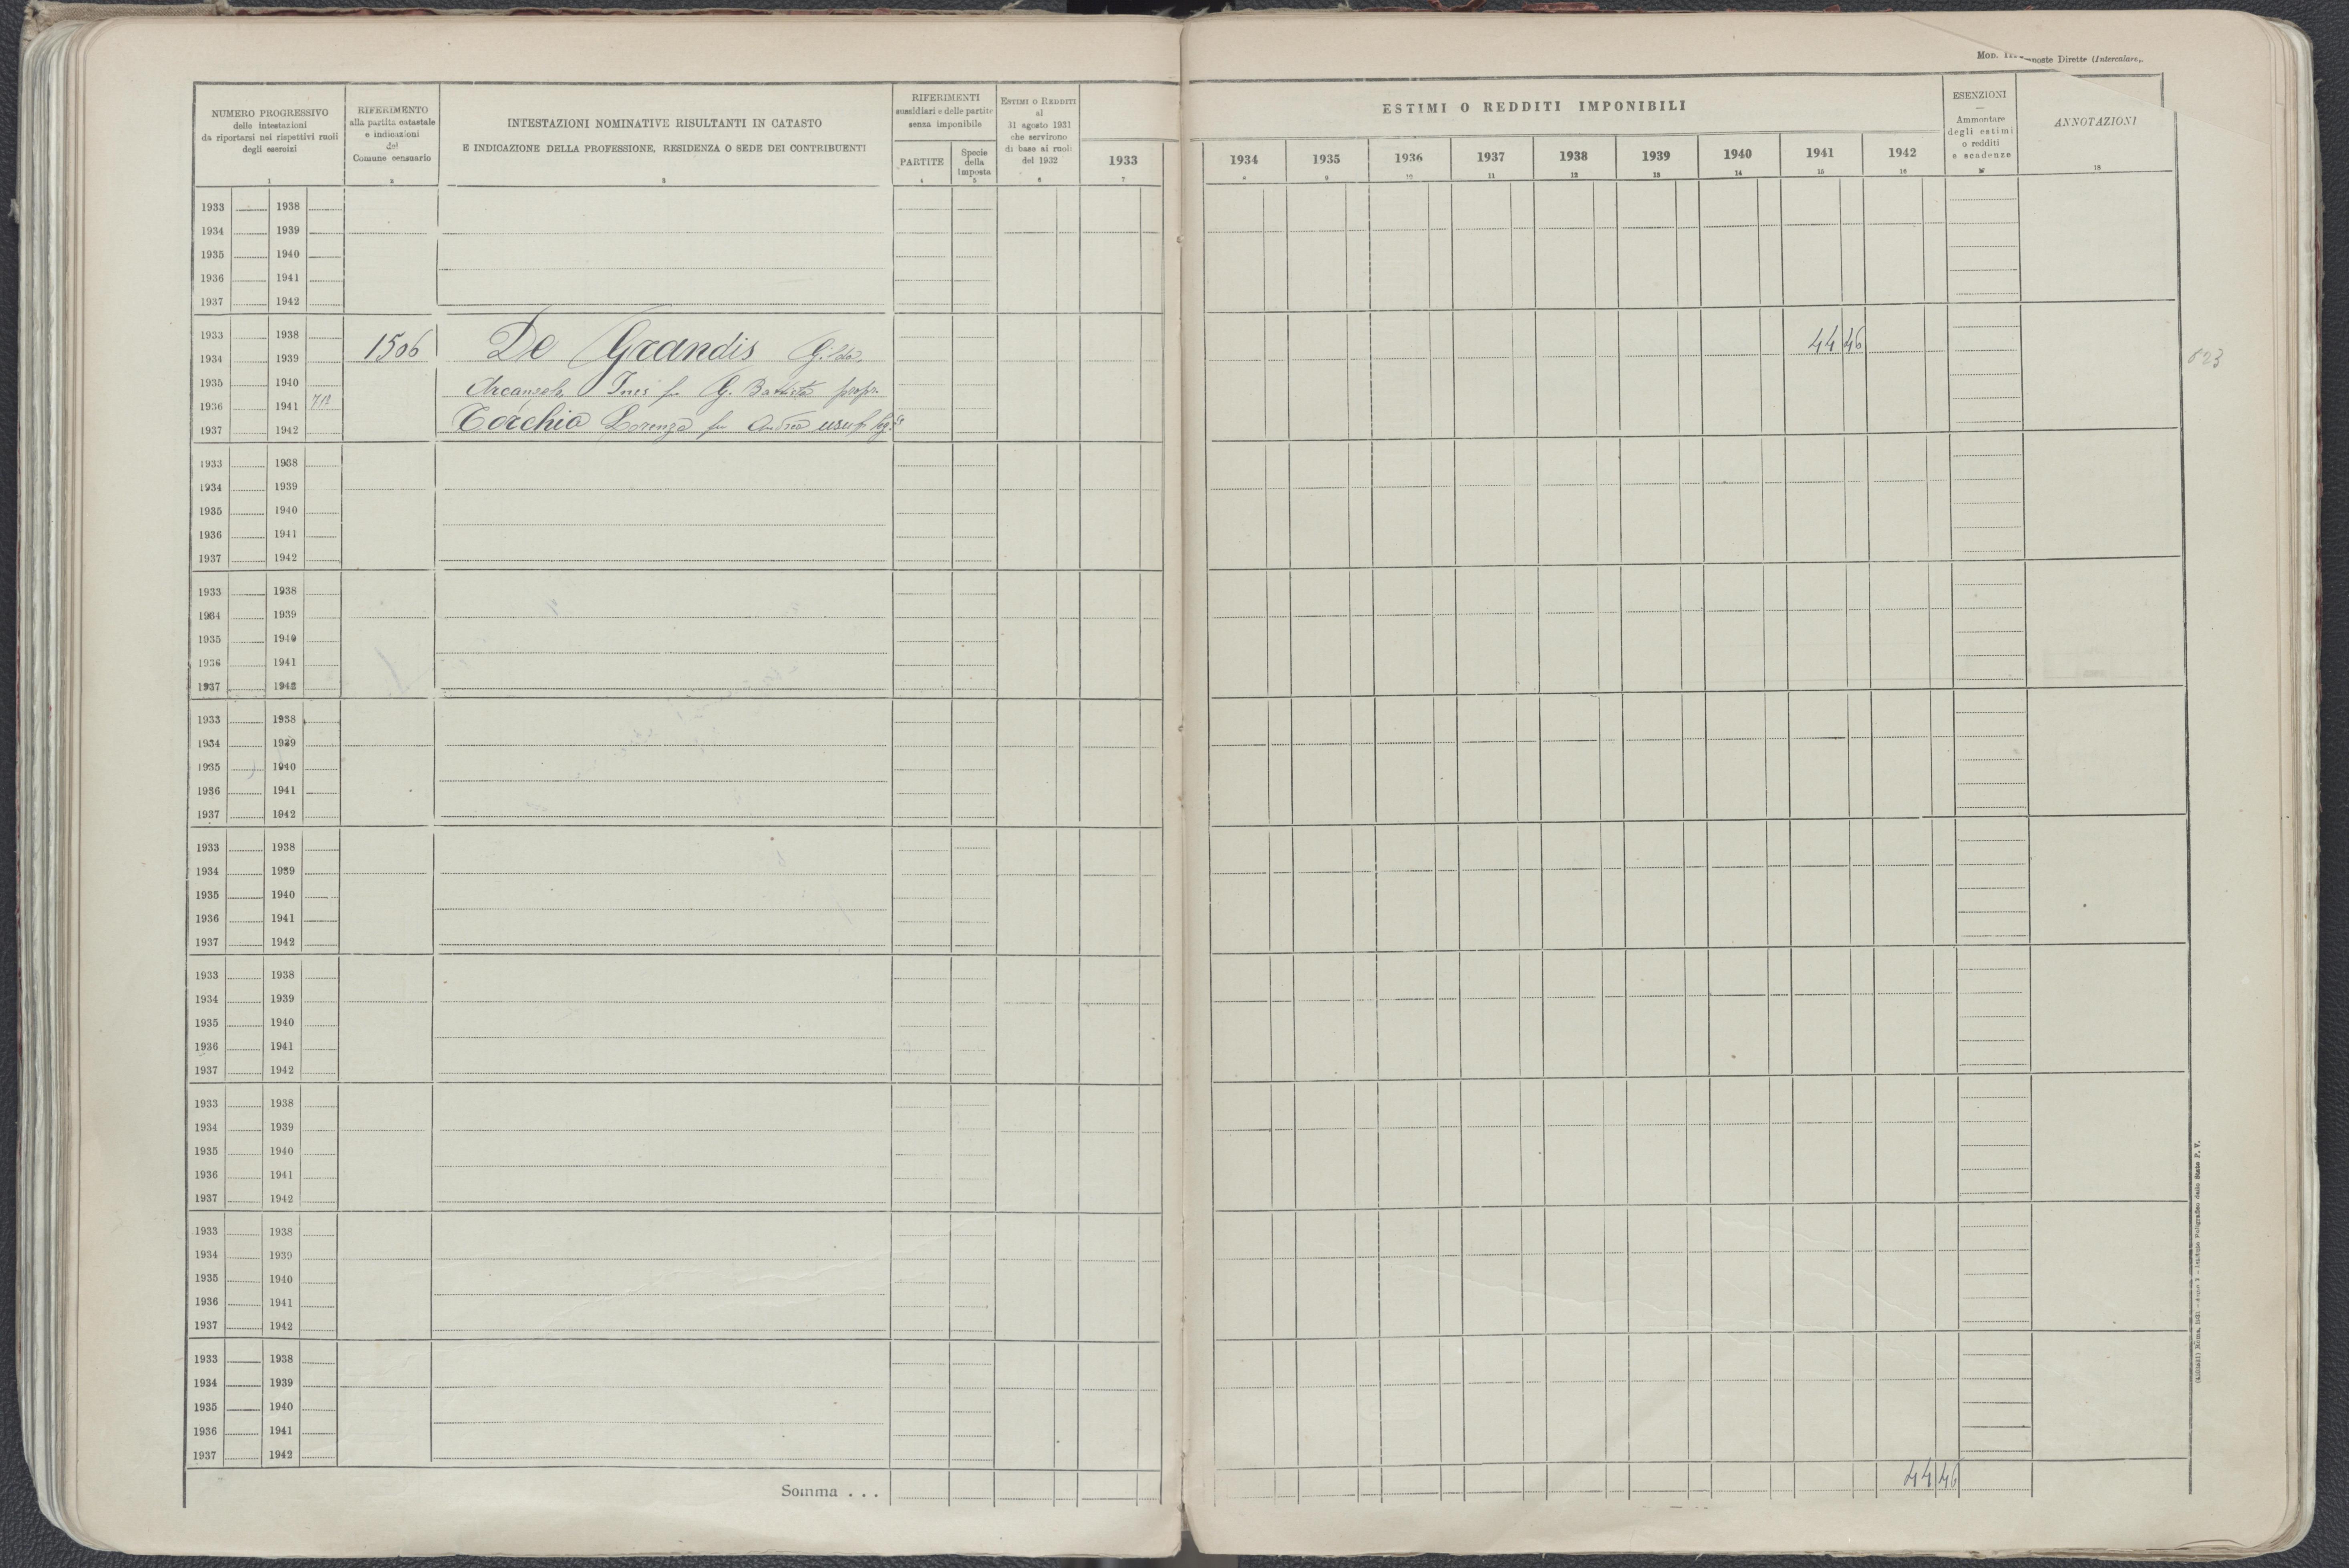 Mod. Imposte Dirette (Intercalare).
NUMERO PROGRESSIVO
delle intestazioni
da riportarsi nei rispettivi ruoli
degli esercizi
1
RIFERIMENTO
alla partita catastale
e indicazioni
del
Comune censuario
2
INTESTAZIONI NOMINATIVE RISULTANTI IN CATASTO
E INDICAZIONE DELLA PROFESSIONE, RESIDENZA O SEDE DEI CONTRIBUENTI
3
RIFERIMENTI
sussidiari e delle partite
senza imponibile
PARTITE
4
Specie
della
imposta
5
ESTIMI O REDDITI
al
31 agosto 1931
che servirono
di base ai ruoli
del 1932
6
1933
7
ESTIMI O REDDITI IMPONIBILI
1934 1935 1936 1937 1938 1939 1940 1941 1942
8 9 10 11 12 13 14 15 16
ESENZIONI
—
Ammontare
degli estimi
o redditi
e scadenze
17
ANNOTAZIONI
18
1933 1938
1934 1939
1935 1940
1936 1941
1937 1942
1933 1938
1934 1939 1506 De Grandis Gilda 44 46
1935 1940 Arcangela, Ines fu G. Battista propr.
1936 1941 712
1937 1942 Torchio Lorenza fu Andrea usuf.
623
1933 1938
1934 1939
1935 1940
1936 1941
1937 1942
1933 1938
1934 1939
1935 1940
1936 1941
1937 1942
1933 1938
1934 1939
1935 1940
1936 1941
1937 1942
1933 1938
1934 1939
1935 1940
1936 1941
1937 1942
1933 1938
1934 1939
1935 1940
1936 1941
1937 1942
1933 1938
1934 1939
1935 1940
1936 1941
1937 1942
1933 1938
1934 1939
1935 1940
1936 1941
1937 1942
1933 1938
1934 1939
1935 1940
1936 1941
1937 1942
Somma . . . 44 46
Roma, Istituto Poligrafico dello Stato P. V.